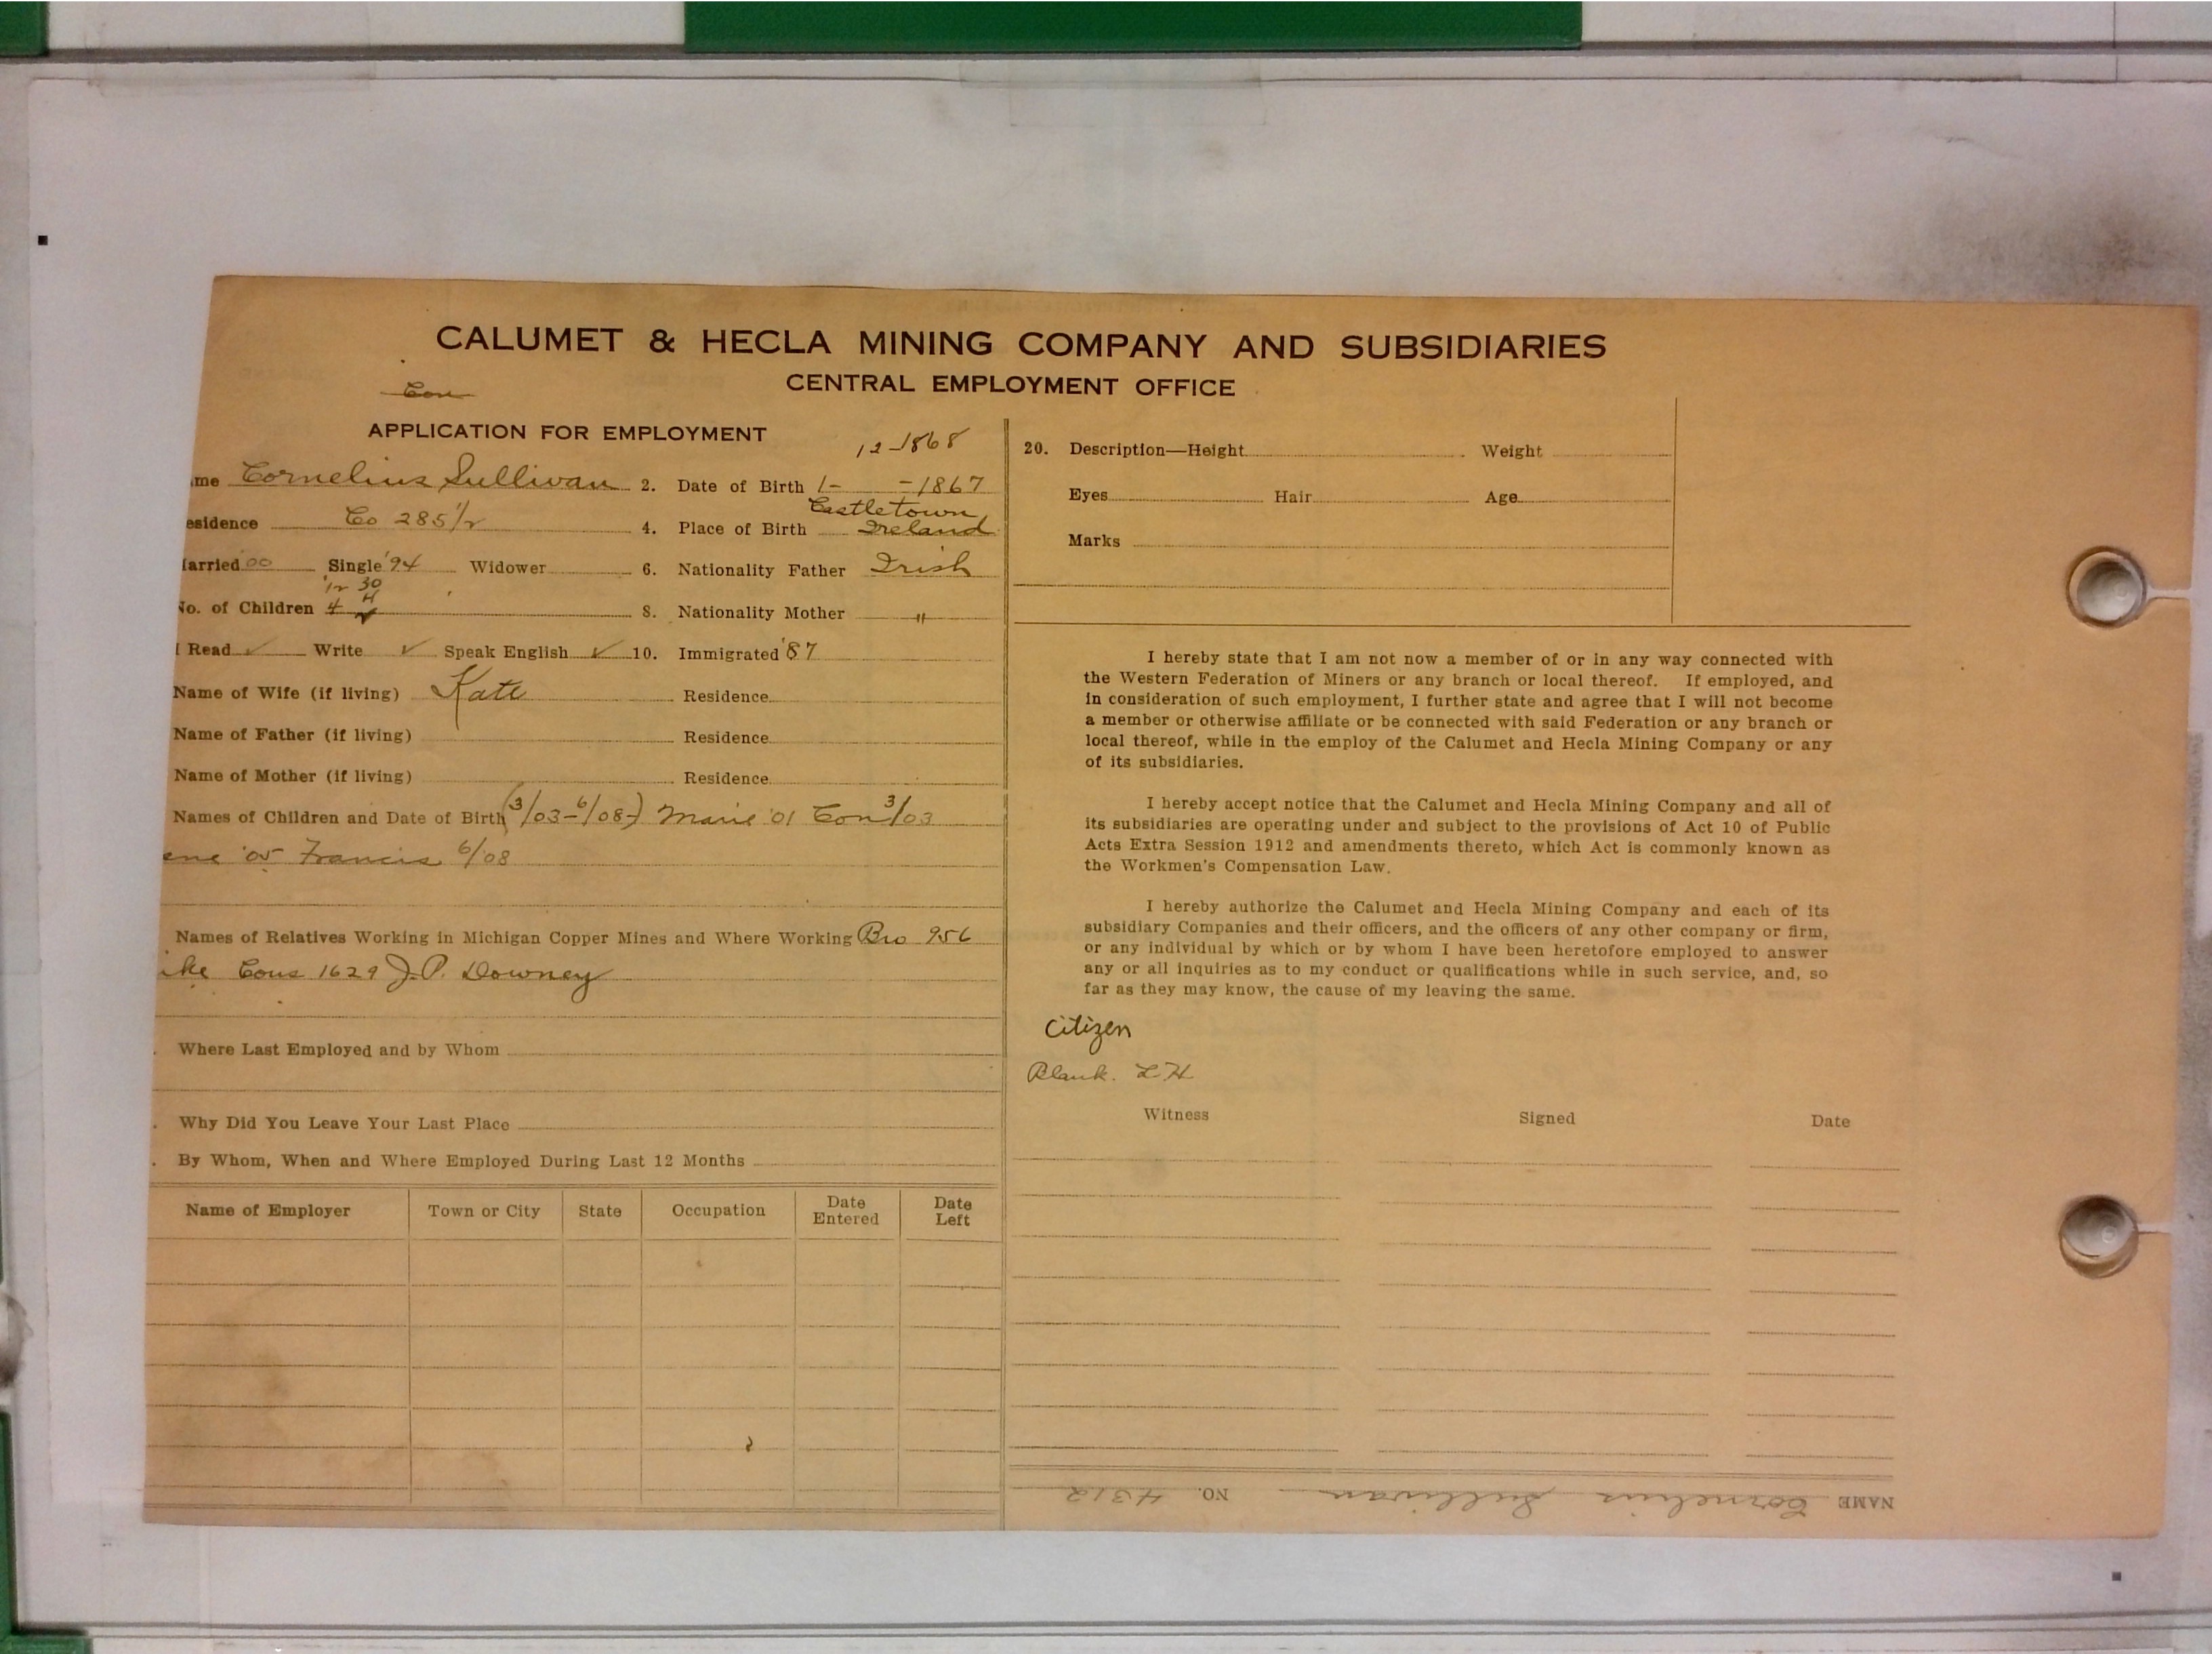 CALUMET & HECLA MINING COMPANY AND SUBSIDIARIES
CENTRAL EMPLOYMENT OFFICE
Con
APPLICATION FOR EMPLOYMENT
12-1868
me Cornelius Sullivan 2. Date of Birth 1- -1867
esidence Co 285 1/2 4. Place of Birth Castletown Ireland
arried '00 Single '94 Widower 6. Nationality Father Irish
'12 30
No. of Children 4 4 8. Nationality Mother "
Read ✓ Write ✓ Speak English ✓ 10. Immigrated '87
Name of Wife (if living) Kate Residence
Name of Father (if living) Residence
Name of Mother (if living) Residence
Names of Children and Date of Birth (3/03-6/08-) Marie '01 Con 3/03
ene '05 Francis 6/08
Names of Relatives Working in Michigan Copper Mines and Where Working Bro 956
ike Cous 1629 J.P. Downey
Where Last Employed and by Whom
Why Did You Leave Your Last Place
By Whom, When and Where Employed During Last 12 Months
Name of Employer Town or City State Occupation Date Entered Date Left
20. Description—Height Weight
Eyes Hair Age
Marks
I hereby state that I am not now a member of or in any way connected with
the Western Federation of Miners or any branch or local thereof. If employed, and
in consideration of such employment, I further state and agree that I will not become
a member or otherwise affiliate or be connected with said Federation or any branch or
local thereof, while in the employ of the Calumet and Hecla Mining Company or any
of its subsidiaries.
I hereby accept notice that the Calumet and Hecla Mining Company and all of
its subsidiaries are operating under and subject to the provisions of Act 10 of Public
Acts Extra Session 1912 and amendments thereto, which Act is commonly known as
the Workmen's Compensation Law.
I hereby authorize the Calumet and Hecla Mining Company and each of its
subsidiary Companies and their officers, and the officers of any other company or firm,
or any individual by which or by whom I have been heretofore employed to answer
any or all inquiries as to my conduct or qualifications while in such service, and, so
far as they may know, the cause of my leaving the same.
Citizen
Blank. L H
Witness Signed Date
NAME Cornelius Sullivan NO. 4312